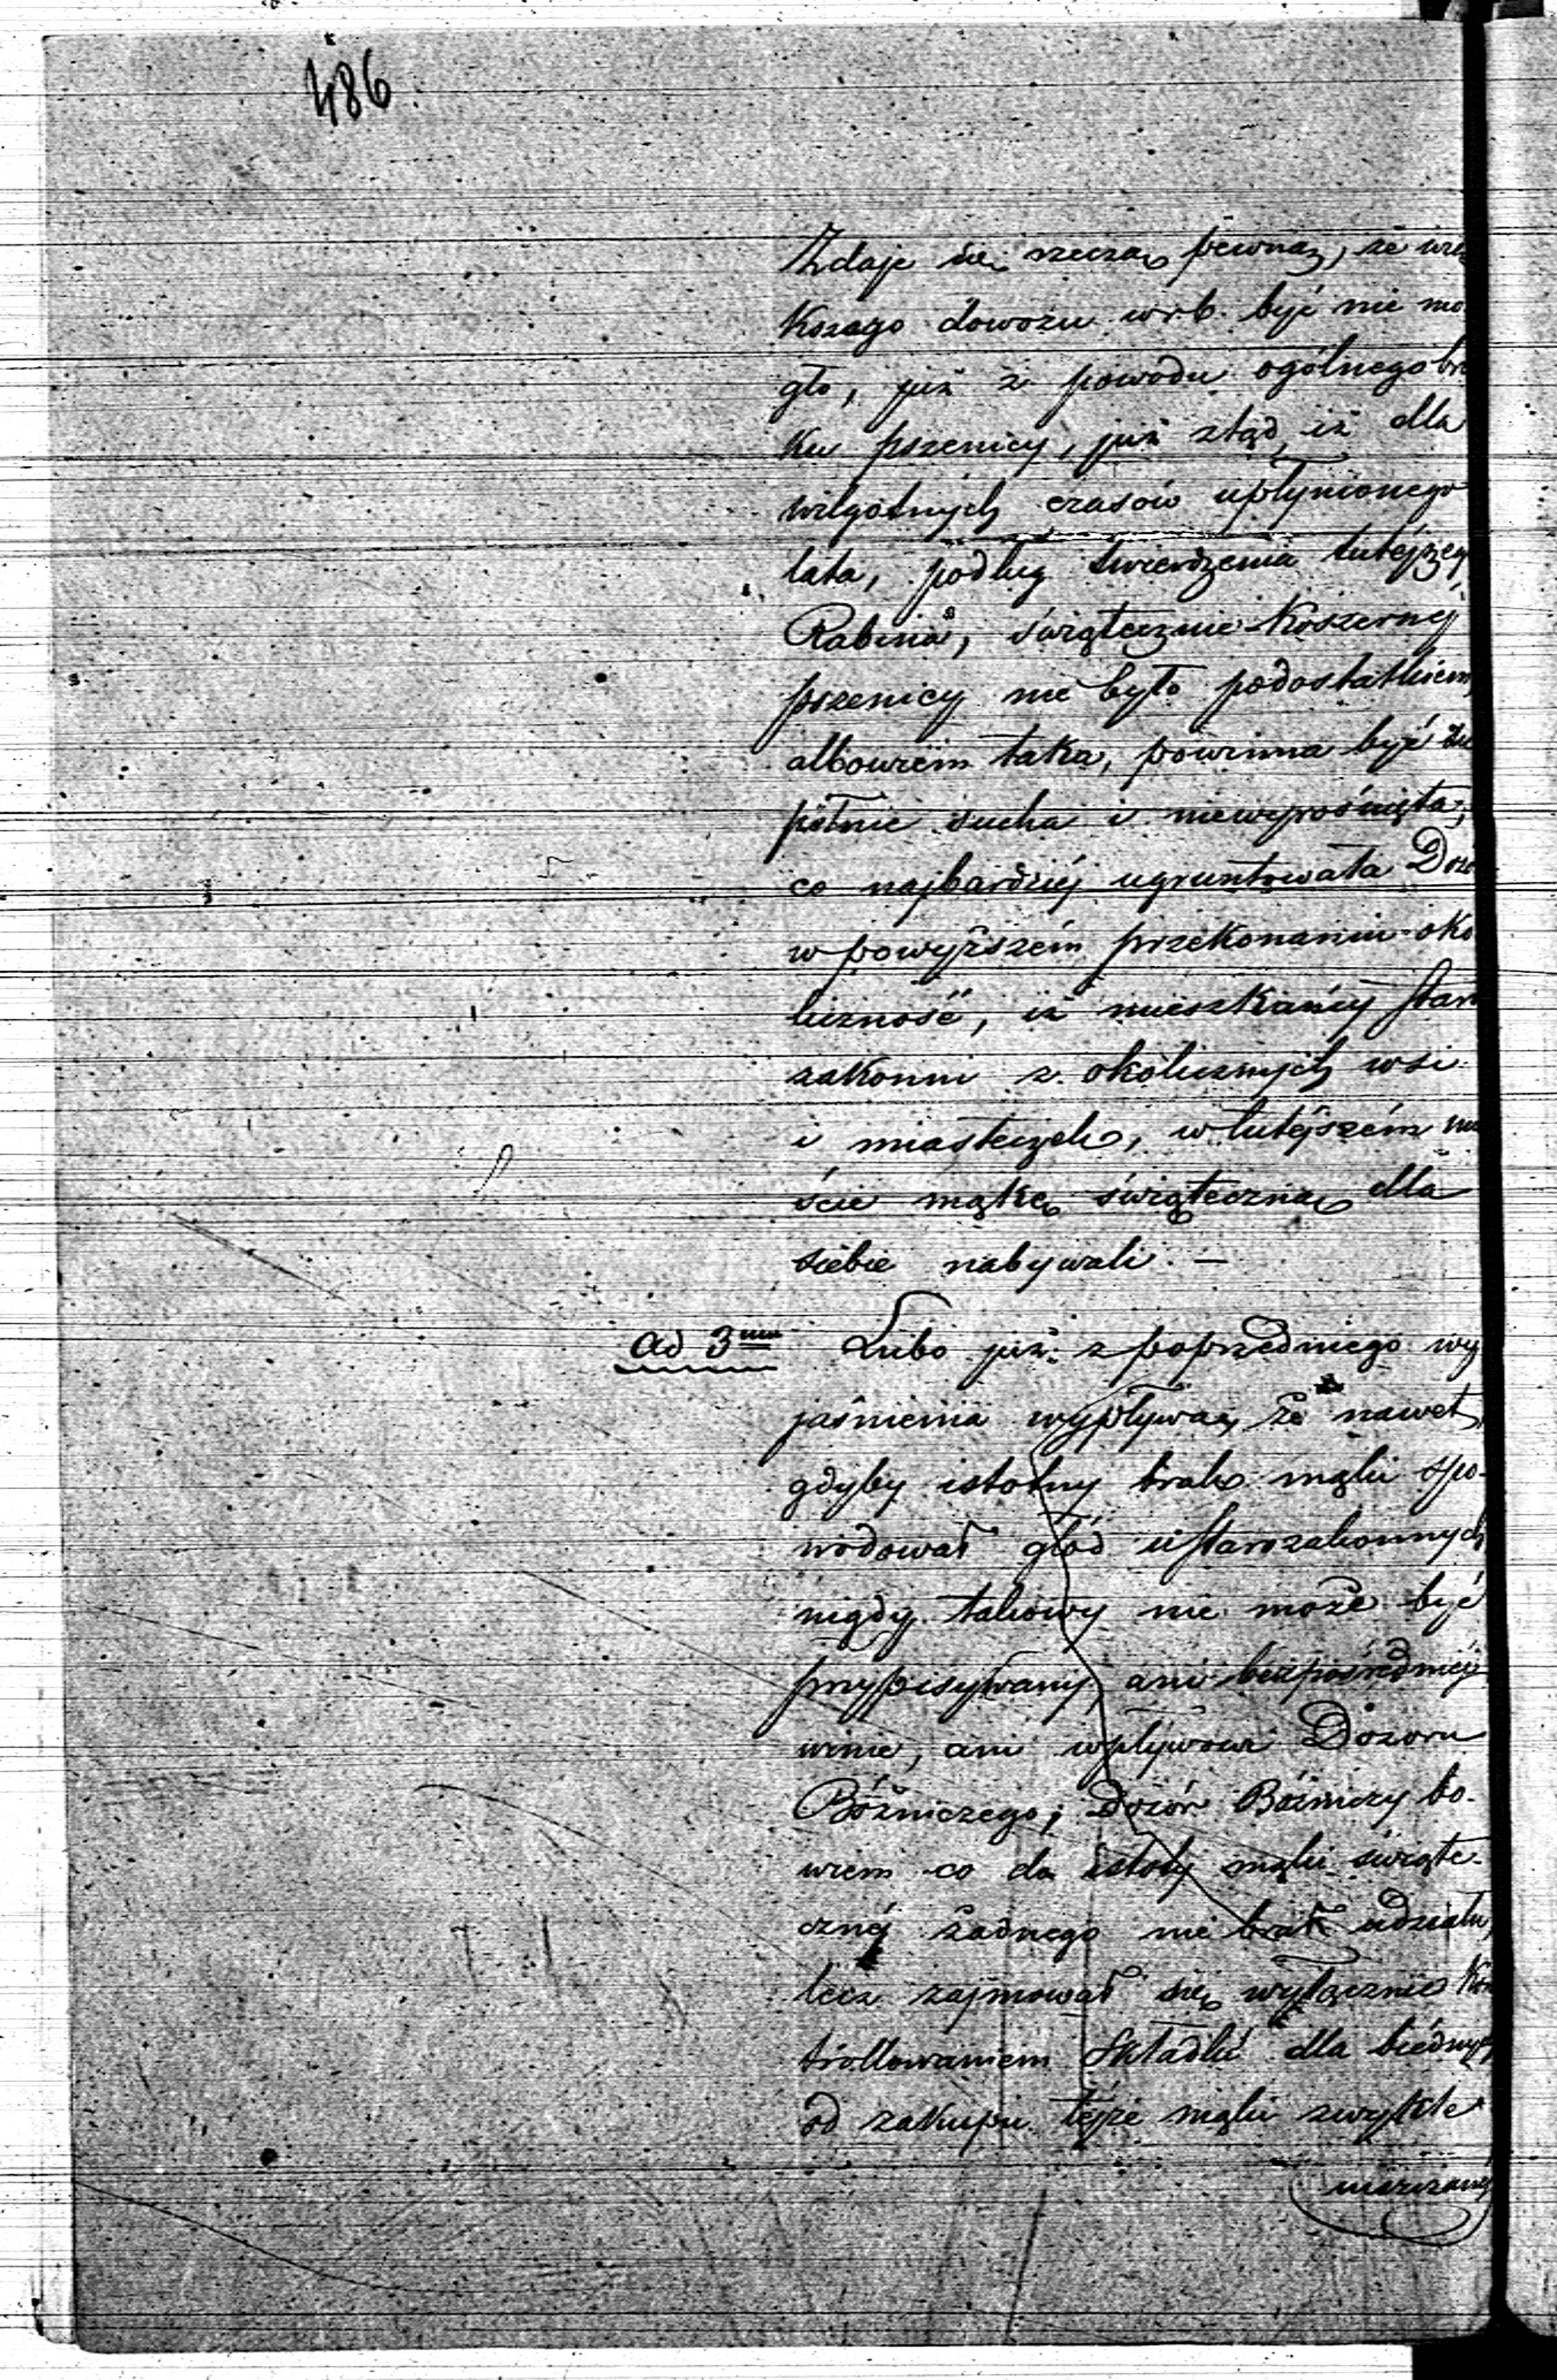 486
Zdaje się rzeczą pewną, że wię
kszego dowozu w r.b. być nie mo
gło, już z powodu ogólnego bra
ku pszenicy, już ztąd, iż dla
wilgotnych czasów upłynionego
lata, podług twierdzenia tutejszego
Rabina, świątecznie koszernej
pszenicy nie było podostatkiem
albowiem taka, powinna być zu
pełnie sucha i niewyrośnięta,
co najbardziej ugruntowała Dozór
w powyższém przekonaniu oko
liczność, iż mieszkańcy staro
zakonni z okolicznych wsi
i miasteczek, w tutéjszém mie
ście mąkę świąteczną dla
siebie nabywali. —
ad 3um Lubo już z poprzedniego wy
jaśnienia wypływa, że nawet
gdyby istotny brak mąki spo-
wodował głód u starozakonnych
nigdy takowy nie może być
przypisywany, ani bezpośredniéj
winie, ani wpływowi Dozoru
Bóźniczego; Dozór Bóżniczy bo-
wiem co do istoty mąki świąte-
cznéj żadnego nie brał udziału,
lecz zajmował się wyłącznie kon
trollowaniem składki dla biédnych
od zakupu téjże mąki zwykle
uiszczanéj